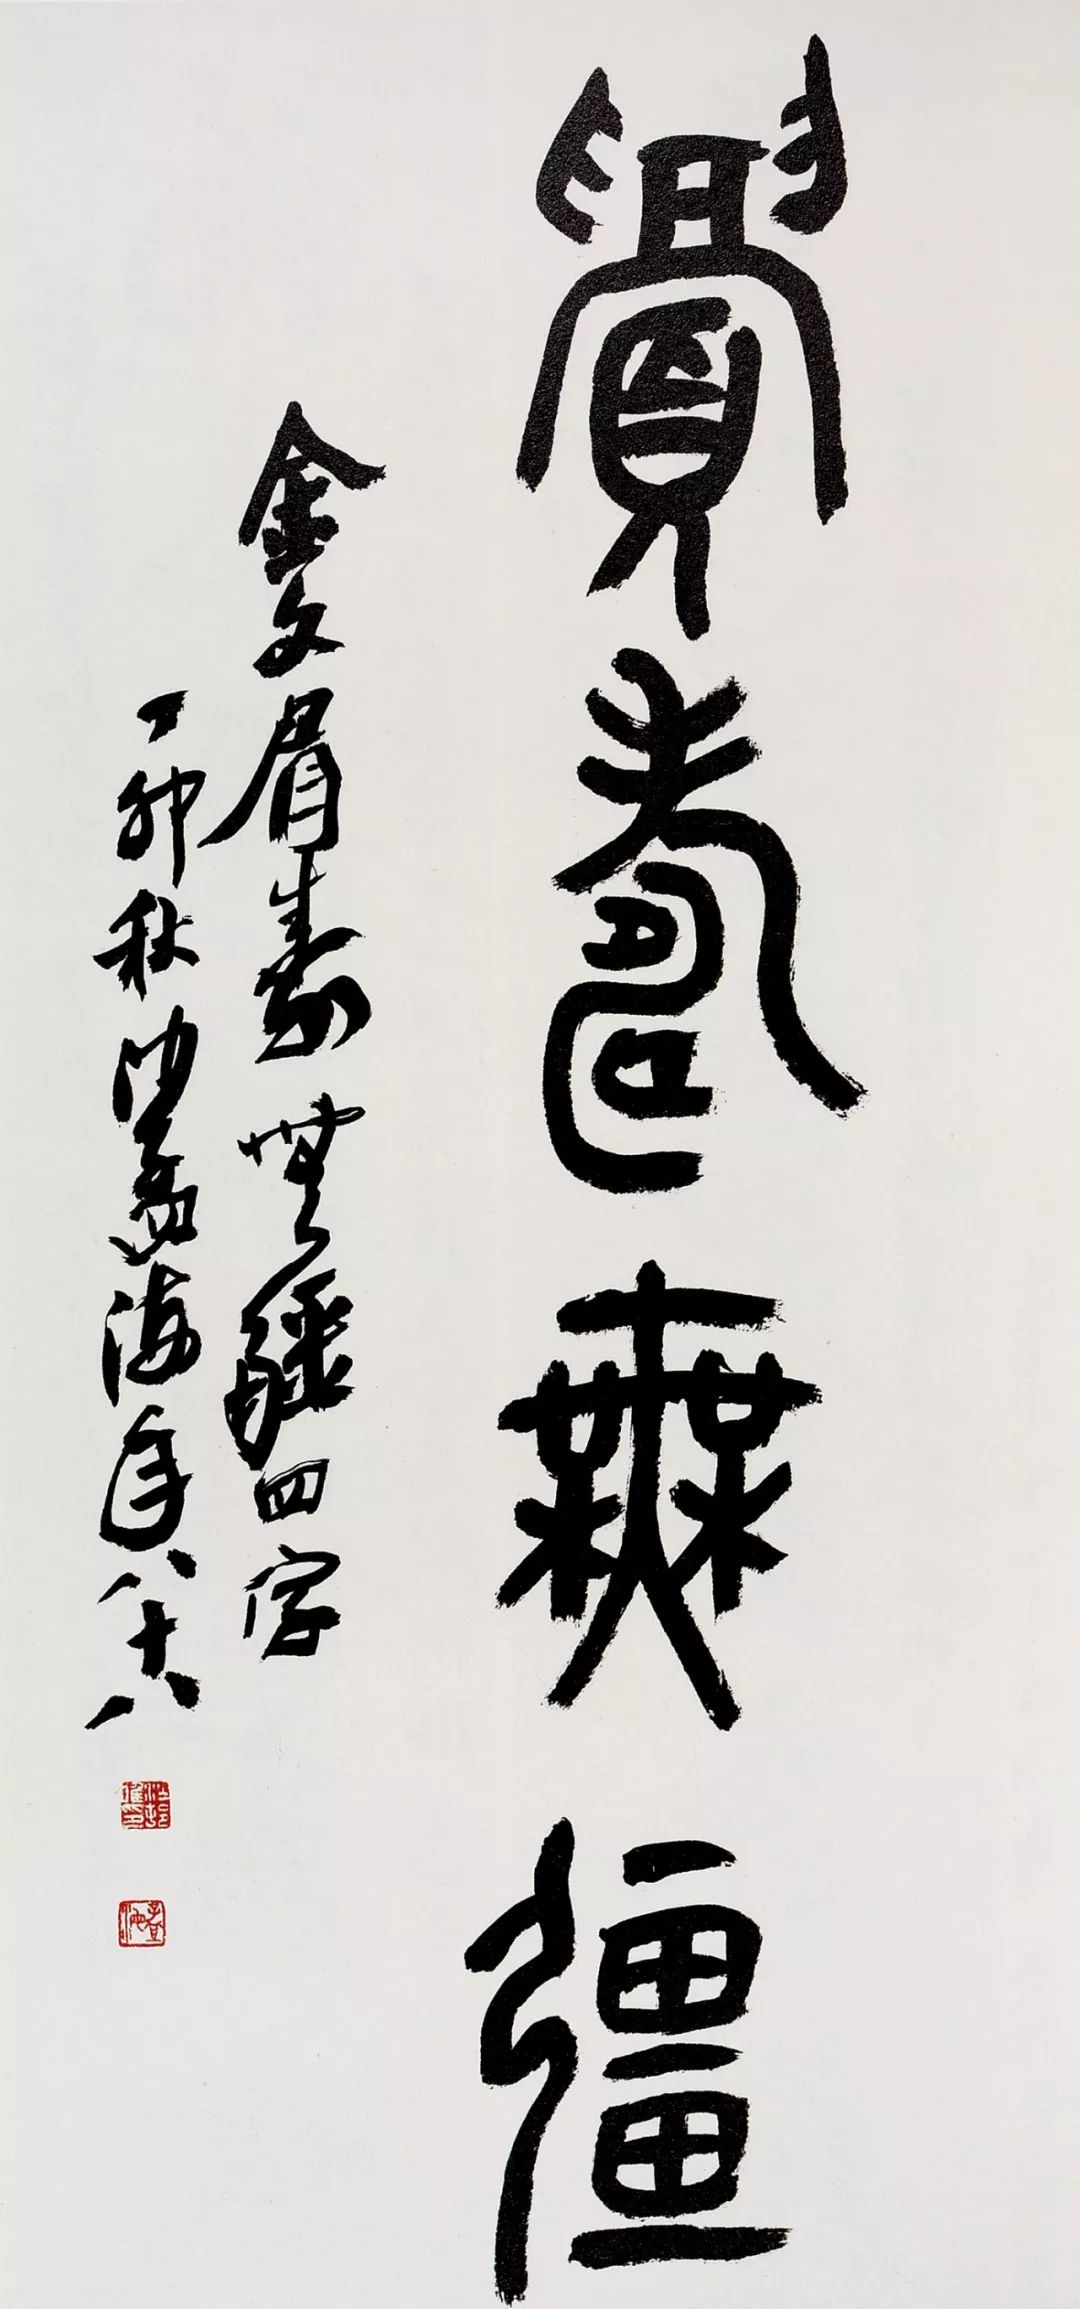 眉壽無疆
金文眉壽無疆四字
丁卯秋沙孟海年八十八
孟海